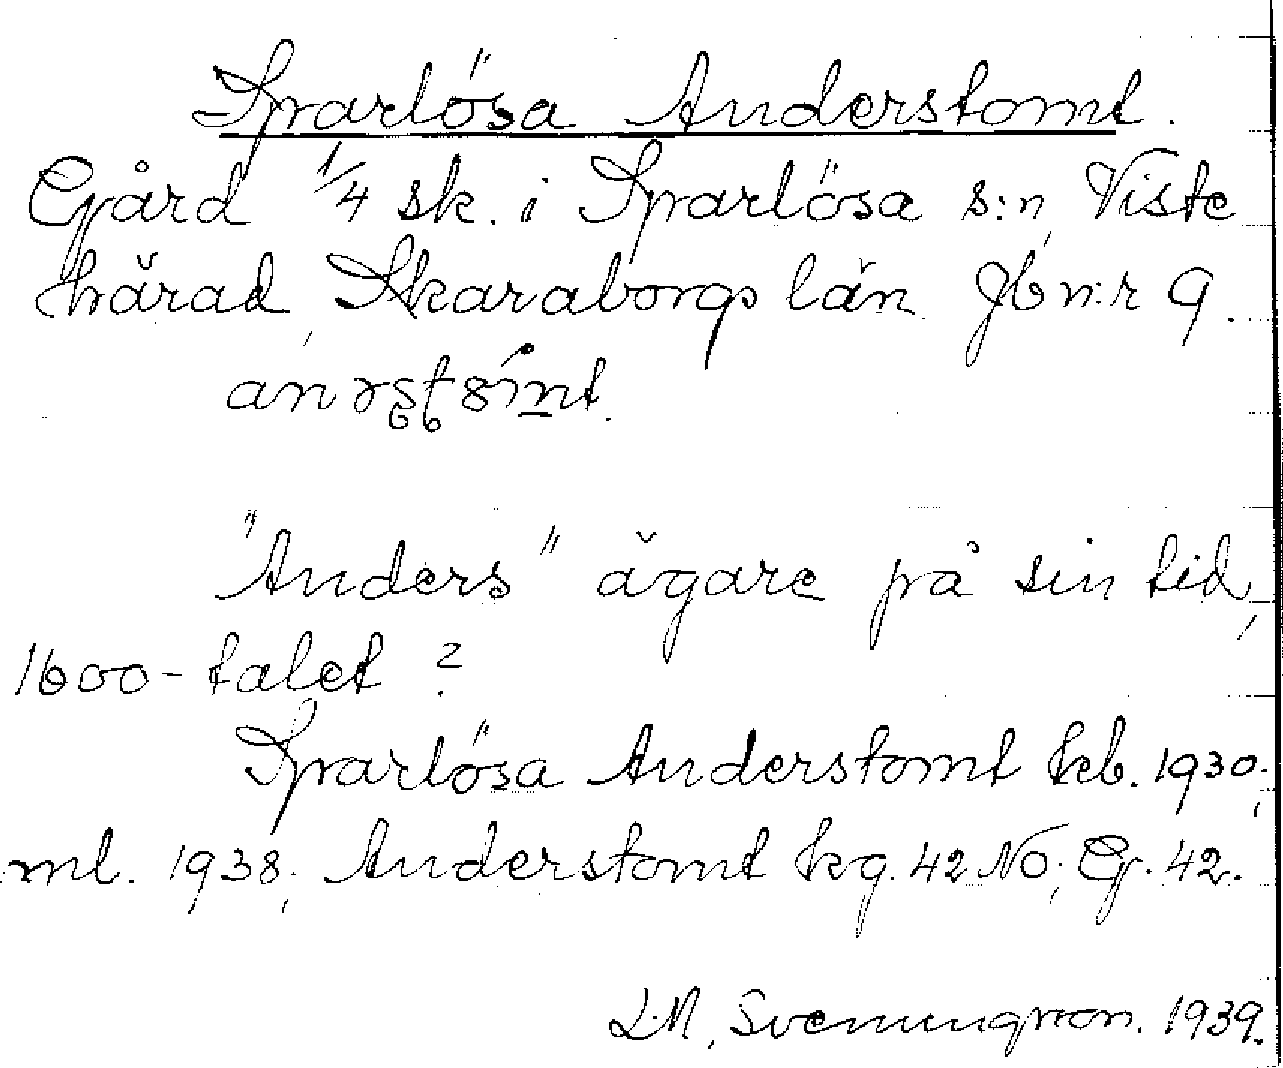 Sparlösa Anderstomt.
Gård 1/4 sk. i Sparlösa s:n, Viste
härad, Skaraborgs län. Jb n:r 9.
"Anders" ägare på sin tid,
1600-talet?
Sparlösa Anderstomt kb. 1930;
ml. 1938; Anderstomt kg. 42 NO; G. 42.
L.M. Svenungsson. 1939.